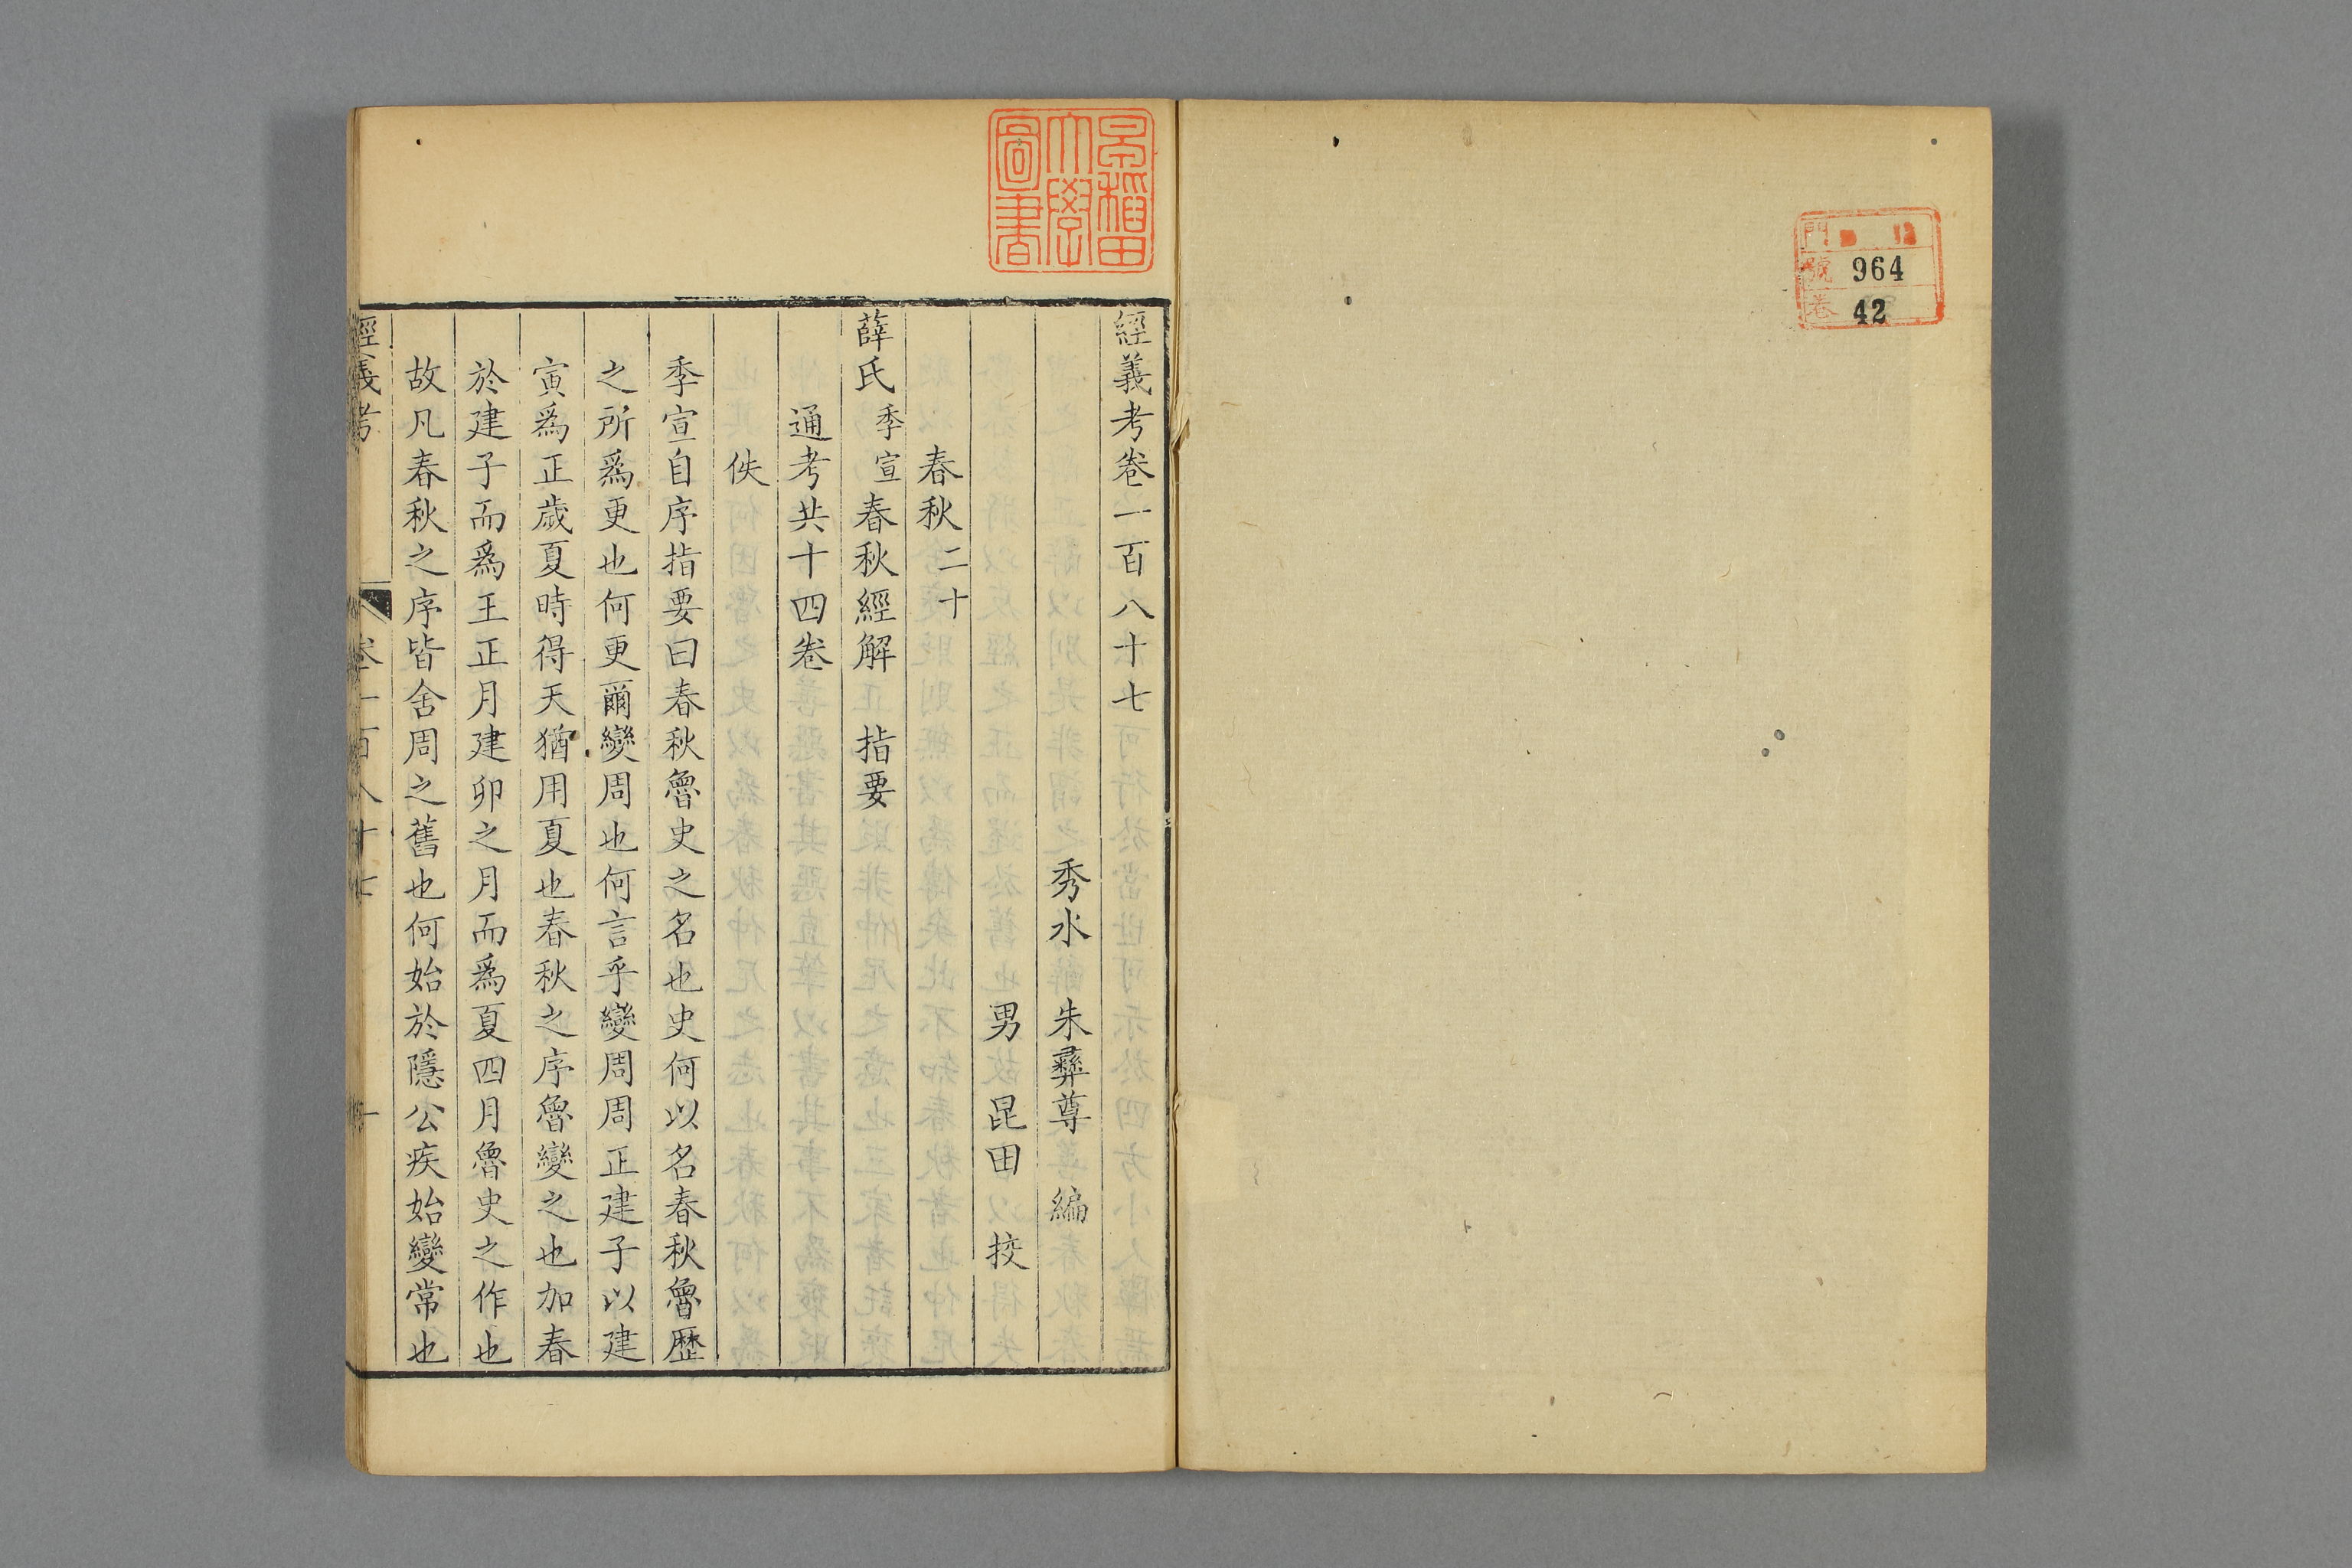 門
號 964
卷 42
早稲田大學圖書
經義考卷一百八十七
秀水 朱彝尊 編
男 昆田 挍
春秋二十
薛氏季宣春秋經解 指要
通考共十四卷
佚
季宣自序指要曰春秋魯史之名也史何以名春秋魯歷
之所爲更也何更爾變周也何言乎變周周正建子以建
寅爲正歲夏時得天猶用夏也春秋之序魯變之也加春
於建子而爲王正月建卯之月而爲夏四月魯史之作也
故凡春秋之序皆舍周之舊也何始於隱公疾始變常也
經義考 卷一百八十七 一